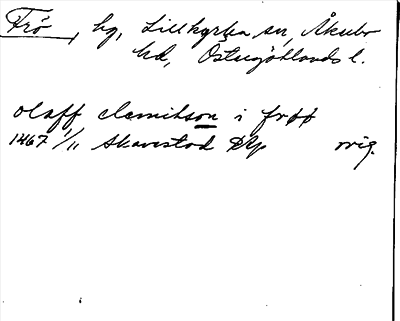 Frö, hg, Lillkyrka sn, Åkerbo
hd, Östergötlands l.
olaff clemitson i frøø
1467 1/11 Skavestad Dp orig.